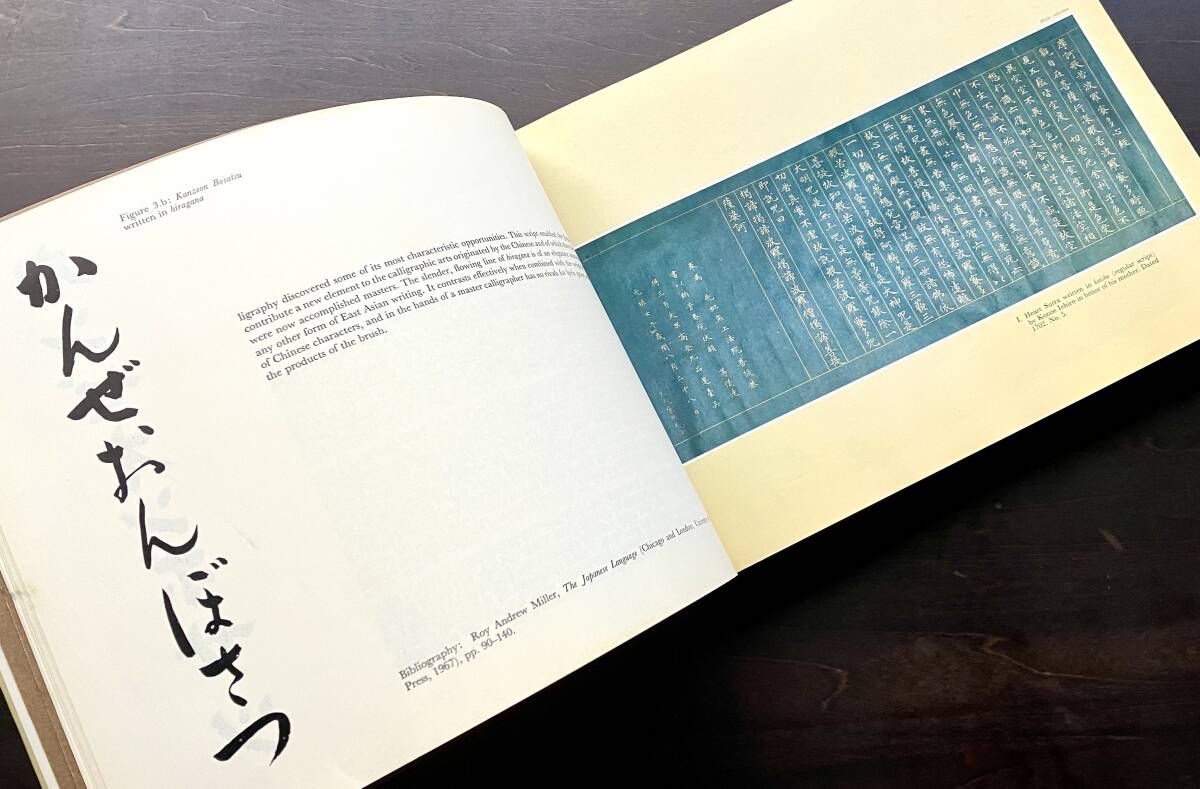 Figure 3.b: Kanzeon Bosatsu
written in hiragana
かんぜおんぼさつ
ligraphy discovered some of its most characteristic opportunities. This script enabled the
contribute a new element to the calligraphic arts originated by the Chinese and of which
were now accomplished masters. The slender, flowing line of hiragana is of an elegance
any other form of East Asian writing. It contrasts effectively when combined with the
of Chinese characters, and in the hands of a master calligrapher has no rivals for lyric
the products of the brush.
Bibliography: Roy Andrew Miller, The Japanese Language (Chicago and London:
Press, 1967), pp. 90–140.
摩訶般若波羅蜜多心経
觀自在菩薩行深般若波羅蜜多時照
見五蘊皆空度一切苦厄舍利子色不
異空空不異色色即是空空即是色受
想行識亦復如是舍利子是諸法空相
不生不滅不垢不淨不增不減是故空
中無色無受想行識無眼耳鼻舌身意
無色聲香味觸法無眼界乃至無意識
界無無明亦無無明盡乃至無老死亦
無老死盡無苦集滅道無智亦無得以
無所得故菩提薩埵依般若波羅蜜多
故心無罣礙無罣礙故無有恐怖遠離
一切顛倒夢想究竟涅槃三世諸佛依
般若波羅蜜多故得阿耨多羅三藐三
菩提故知般若波羅蜜多是大神咒是
大明咒是無上咒是無等等咒能除一
切苦真實不虛故說般若波羅蜜多咒
即說咒曰
揭諦揭諦波羅揭諦波羅僧揭諦菩提
薩婆訶
閏八月二十八日
1. Heart Sutra written in kaisho (regular script)
by Konoe Iehiro in honor of his mother. Dated
1702. No. 5.